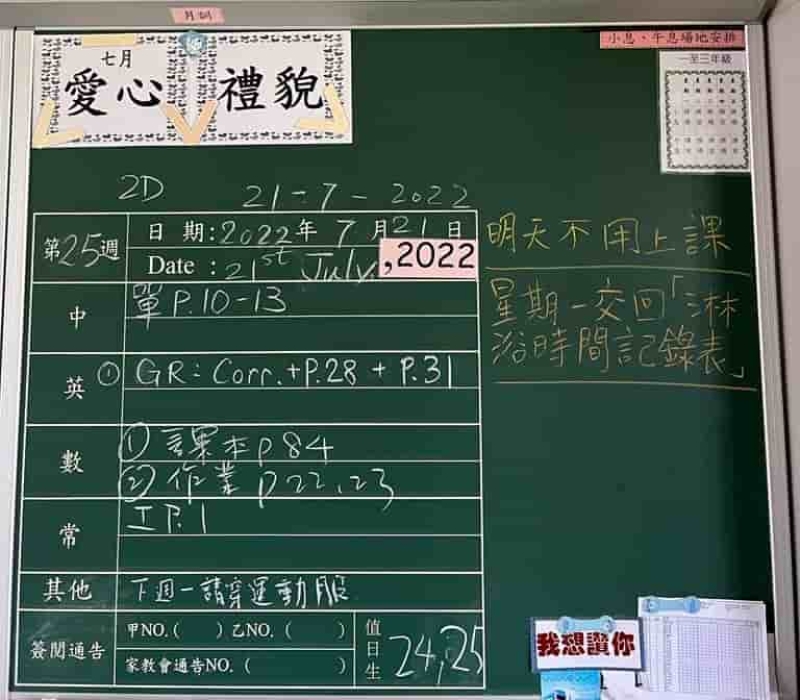 月訓
七月
愛心 禮貌
小息、午息場地安排
一至三年級
2D 21-7-2022
第25週
日期:2022年7月21日
Date : 21st July ,2022
中
單P.10-13
英
① GR: Corr.+P.28 + P.31
數
①課本p84
②作業p22,23
常
工P.1
其他
下週一請穿運動服
簽閱通告
甲NO.( )乙NO.( )
家教會通告NO.( )
值日生
24,25
明天不用上課
星期一交回「沐
浴時間記錄表」
我想讚你